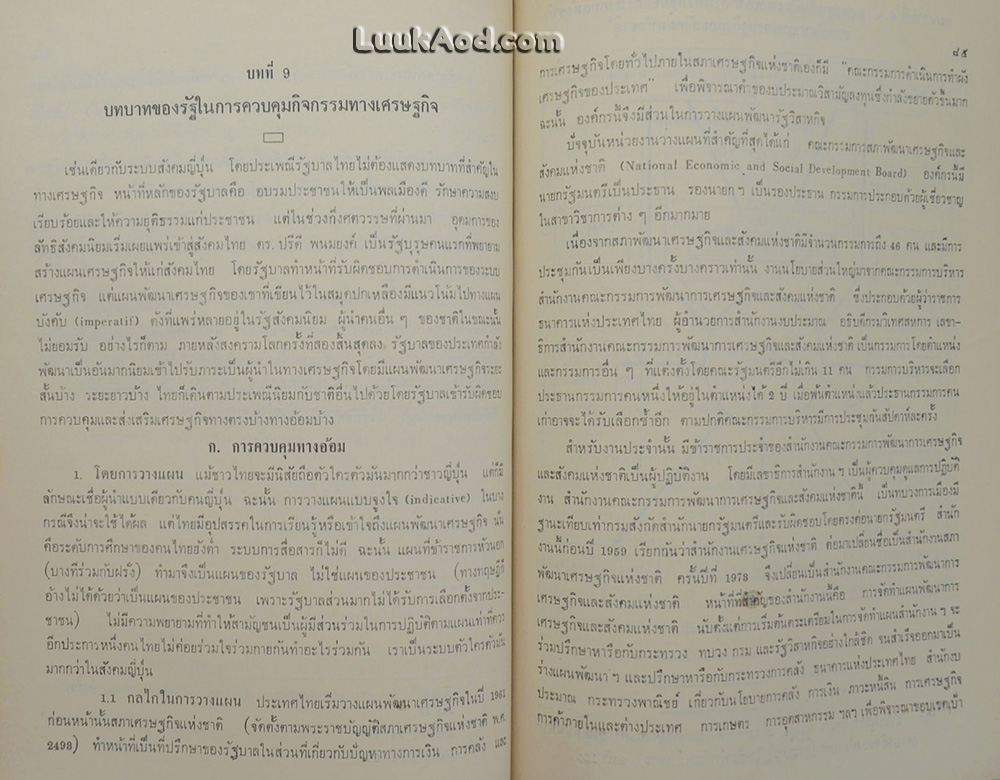 LuukAod.com
บทที่ 9
บทบาทของรัฐในการควบคุมกิจกรรมทางเศรษฐกิจ
เช่นเดียวกับระบบสังคมญี่ปุ่น โดยประเพณีรัฐบาลไทยไม่ต้องแสดงบทบาทที่สำคัญใน
ทางเศรษฐกิจ หน้าที่หลักของรัฐบาลคือ อบรมประชาชนให้เป็นพลเมืองดี รักษาความสงบ
เรียบร้อยและให้ความยุติธรรมแก่ประชาชน แต่ในช่วงกึ่งศตวรรษที่ผ่านมา อุดมการของ
ลัทธิสังคมนิยมเริ่มเผยแพร่เข้าสู่สังคมไทย ดร. ปรีดี พนมยงค์ เป็นรัฐบุรุษคนแรกที่พยายาม
สร้างแผนเศรษฐกิจให้แก่สังคมไทย โดยรัฐบาลทำหน้าที่รับผิดชอบการดำเนินการของระบบ
เศรษฐกิจ แต่แผนพัฒนาเศรษฐกิจของเขาที่เขียนไว้ในสมุดปกเหลืองมีแนวโน้มไปทางแผน
บังคับ (imperatif) ดังที่แพร่หลายอยู่ในรัฐสังคมนิยม ผู้นำคนอื่น ๆ ของชาติในขณะนั้น
ไม่ยอมรับ อย่างไรก็ตาม ภายหลังสงครามโลกครั้งที่สองสิ้นสุดลง รัฐบาลของประเทศกำลัง
พัฒนาเป็นอันมากนิยมเข้าไปรับภาระเป็นผู้นำในทางเศรษฐกิจโดยมีแผนพัฒนาเศรษฐกิจระยะ
สั้นบ้าง ระยะยาวบ้าง ไทยก็เดินตามประเพณีนิยมกับชาติอื่นไปด้วยโดยรัฐบาลเข้ารับผิดชอบ
การควบคุมและส่งเสริมเศรษฐกิจทางตรงบ้างทางอ้อมบ้าง
ก. การควบคุมทางอ้อม
1. โดยการวางแผน แม้ชาวไทยจะมีนิสัยถือตัวใครตัวมันมากกว่าชาวญี่ปุ่น แต่ก็มี
ลักษณะเชื่อผู้นำแบบเดียวกับคนญี่ปุ่น ฉะนั้น การวางแผนแบบจูงใจ (indicative) ในบาง
กรณีจึงน่าจะใช้ได้ผล แต่ไทยมีอุปสรรคในการเรียนรู้หรือเข้าใจถึงแผนพัฒนาเศรษฐกิจ นั่น
คือระดับการศึกษาของคนไทยยังต่ำ ระบบการสื่อสารก็ไม่ดี ฉะนั้น แผนที่ข้าราชการหัวนอก
(บางทีร่วมกับฝรั่ง) ทำมาจึงเป็นแผนของรัฐบาล ไม่ใช่แผนของประชาชน (ทางทฤษฎีก็
อ้างไม่ได้ด้วยว่าเป็นแผนของประชาชน เพราะรัฐบาลส่วนมากไม่ได้รับการเลือกตั้งจากประ-
ชาชน) ไม่มีความพยายามที่ทำให้สามัญชนเป็นผู้มีส่วนร่วมในการปฏิบัติตามแผนเท่าที่ควร
อีกประการหนึ่งคนไทยไม่ค่อยร่วมใจร่วมกายกันทำอะไรร่วมกัน เราเป็นระบบตัวใครตัวมัน
มากกว่าในสังคมญี่ปุ่น
1.1 กลไกในการวางแผน ประเทศไทยเริ่มวางแผนพัฒนาเศรษฐกิจในปี 1961
ก่อนหน้านั้นสภาเศรษฐกิจแห่งชาติ (จัดตั้งตามพระราชบัญญัติสภาเศรษฐกิจแห่งชาติ พ.ศ.
2493) ทำหน้าที่เป็นที่ปรึกษาของรัฐบาลในส่วนที่เกี่ยวกับปัญหาทางการเงิน การคลัง และ
๘๕
การเศรษฐกิจโดยทั่วไปภายในสภาเศรษฐกิจแห่งชาติเองก็มี "คณะกรรมการดำเนินการทำผัง
เศรษฐกิจของประเทศ" เพื่อพิจารณาคำของบประมาณวิสามัญลงทุนซึ่งกำลังขยายตัวขึ้นมาก
ฉะนั้น องค์กรนี้จึงมีส่วนในการวางแผนพัฒนารัฐวิสาหกิจ
ปัจจุบันหน่วยงานวางแผนที่สำคัญที่สุดได้แก่ คณะกรรมการสภาพัฒนาเศรษฐกิจและ
สังคมแห่งชาติ (National Economic and Social Development Board) องค์กรนี้มี
นายกรัฐมนตรีเป็นประธาน รองนายก ฯ เป็นรองประธาน กรรมการประกอบด้วยผู้เชี่ยวชาญ
ในสาขาวิชาการต่าง ๆ อีกมากมาย
เนื่องจากสภาพัฒนาเศรษฐกิจและสังคมแห่งชาติมีจำนวนกรรมการถึง 46 คน และมีการ
ประชุมกันเป็นเพียงบางครั้งบางคราวเท่านั้น งานนโยบายส่วนใหญ่มาจากคณะกรรมการบริหาร
สำนักงานคณะกรรมการพัฒนาการเศรษฐกิจและสังคมแห่งชาติ ซึ่งประกอบด้วยผู้ว่าราชการ
ธนาคารแห่งประเทศไทย ผู้อำนวยการสำนักงบประมาณ อธิบดีกรมวิเทศสหการ เลขา-
ธิการสำนักงานคณะกรรมการพัฒนาการเศรษฐกิจและสังคมแห่งชาติ เป็นกรรมการโดยตำแหน่ง
และกรรมการอื่น ๆ ที่แต่งตั้งโดยคณะรัฐมนตรีอีกไม่เกิน 11 คน กรรมการบริหารจะเลือก
ประธานกรรมการคนหนึ่งให้อยู่ในตำแหน่งได้ 2 ปี เมื่อพ้นตำแหน่งแล้วประธานกรรมการคน
เก่าอาจจะได้รับเลือกซ้ำอีก ตามปกติคณะกรรมการบริหารมีการประชุมกันสัปดาห์ละครั้ง
สำหรับงานประจำนั้น มีข้าราชการประจำของสำนักงานคณะกรรมการพัฒนาการเศรษฐกิจ
และสังคมแห่งชาติเป็นผู้ปฏิบัติงาน โดยมีเลขาธิการสำนักงาน ฯ เป็นผู้ควบคุมดูแลการปฏิบัติ
งาน สำนักงานคณะกรรมการพัฒนาการเศรษฐกิจและสังคมแห่งชาตินี้ เป็นทบวงการเมืองมี
ฐานะเทียบเท่ากรมสังกัดสำนักนายกรัฐมนตรีและรับผิดชอบโดยตรงต่อนายกรัฐมนตรี สำนัก
งานนี้ก่อนปี 1959 เรียกกันว่าสำนักงานเศรษฐกิจแห่งชาติ ต่อมาเปลี่ยนชื่อเป็นสำนักงานสภา
พัฒนาเศรษฐกิจแห่งชาติ ครั้นปีที่ 1973 จึงเปลี่ยนเป็นสำนักงานคณะกรรมการพัฒนาการ
เศรษฐกิจและสังคมแห่งชาติ หน้าที่ที่สำคัญของสำนักงานนี้คือ การจัดทำแผนพัฒนาการ
เศรษฐกิจและสังคมแห่งชาติ นับตั้งแต่การเริ่มต้นตระเตรียมในการจัดทำแผนสำนักงาน ฯ จะ
ร่วมปรึกษาหารือกับกระทรวง ทบวง กรม และรัฐวิสาหกิจอย่างใกล้ชิด จนสำเร็จออกมาเป็น
ร่างแผนพัฒนา ฯ และปรึกษาหารือกับกระทรวงการคลัง ธนาคารแห่งประเทศไทย สำนักงบ
ประมาณ กระทรวงพาณิชย์ เกี่ยวกับนโยบายการคลัง การเงิน ภาวะหนี้สิน การเศรษฐกิจ
การค้าภายในและต่างประเทศ การเกษตร การอุตสาหกรรม ฯลฯ เพื่อพิจารณาขอบเขตเป้า